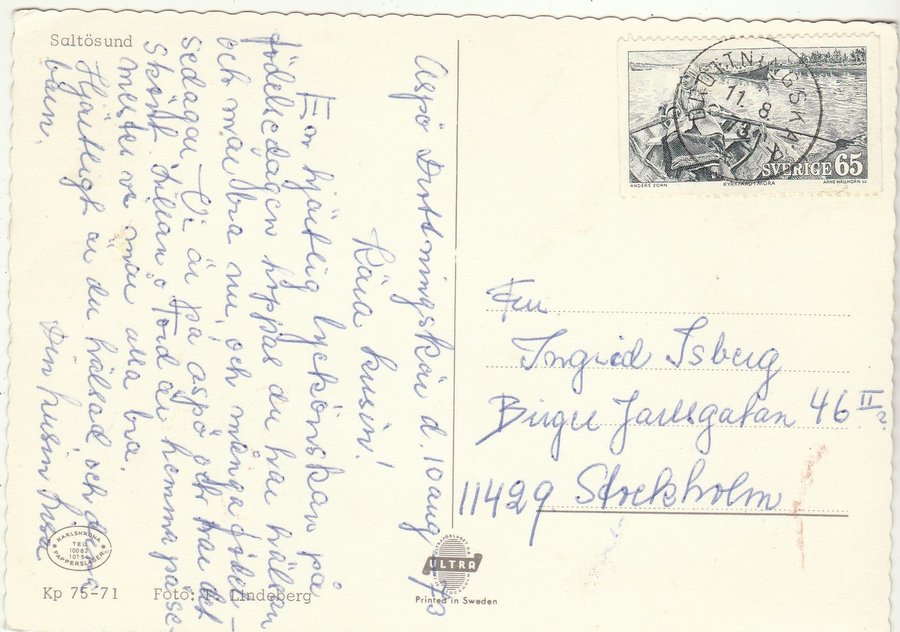 Saltösund
Aspö Drottningskär d. 10 aug 73
Kära kusin!
En hjärtlig lyckönskan på
födelsedagen hoppas du har hälsan
och mår bra nu, och många föde-
sedagar. Vi är på aspö och har det
skönt, Lillian o Tord är hemma på se-
mester vi mår alla bra.
Hjärtligt är du hälsad och dina
barn.
Din kusin
KARLSKRONA
TEL
PAPPERSLAGER
Kp 75-71 Foto: Lindeberg
ULTRA
Printed in Sweden
DROTTNINGSKÄR
11. 8.
73
SVERIGE 65
ANDERS ZORN KYRKFÄRD I MORA ARNE WALLHORN SC
Fru
Ingrid Isberg
Birger Jarlsgatan 46 II
11429 Stockholm